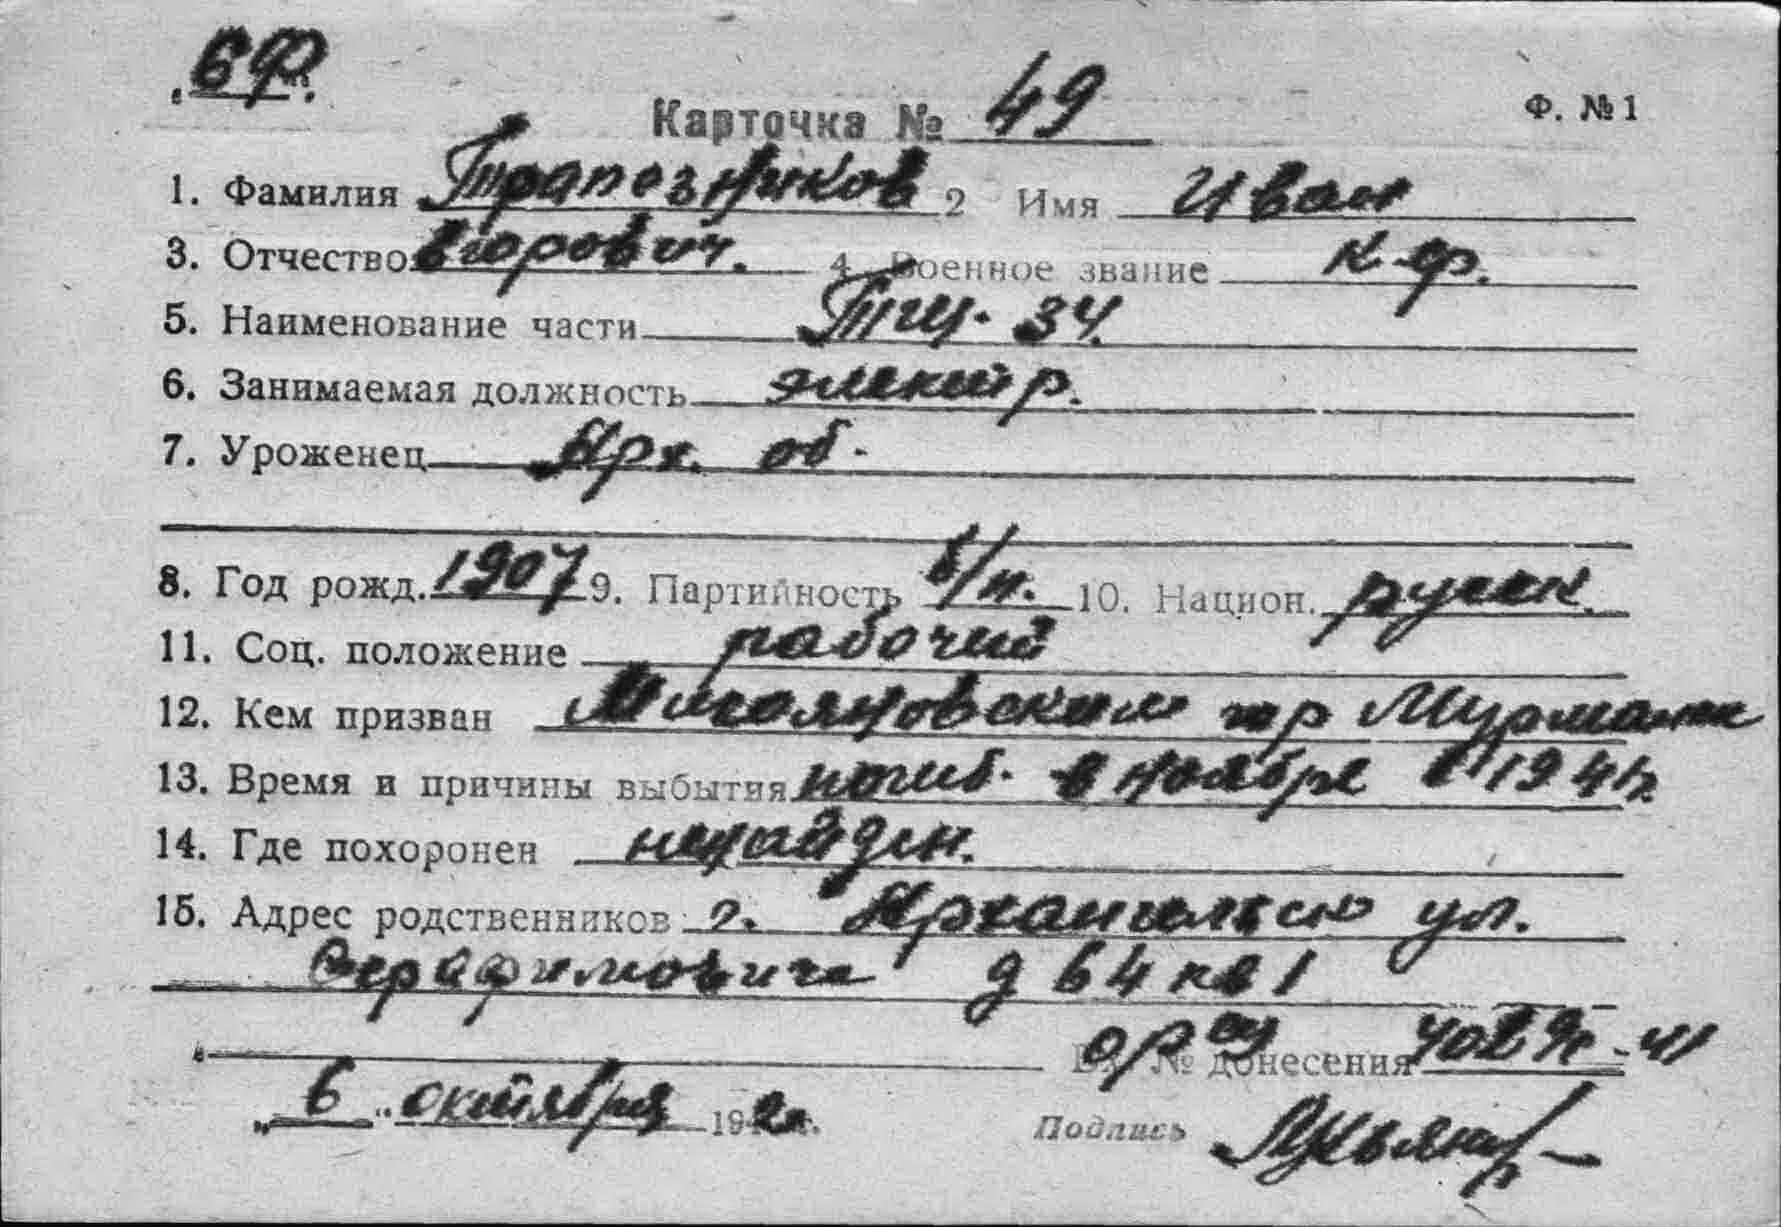 БФ.
Карточка № 49 Ф. №1
1. Фамилия Трапезников 2 Имя Иван
3. Отчество Егорович. 4. Военное звание к-ф.
5. Наименование части Тщ. 34.
6. Занимаемая должность электр.
7. Уроженец Арх. об.
8. Год рожд. 1907 9. Партийность б/п. 10. Национ. русск.
11. Соц. положение рабочий
12. Кем призван Микояновским гор Мурманск
13. Время и причины выбытия погиб. в ноябре 1941г.
14. Где похоронен ненайден.
15. Адрес родственников г. Архангельск ул.
Серафимовича д 64 кв 1
№ донесения
„6" октября 1942г. Подпись